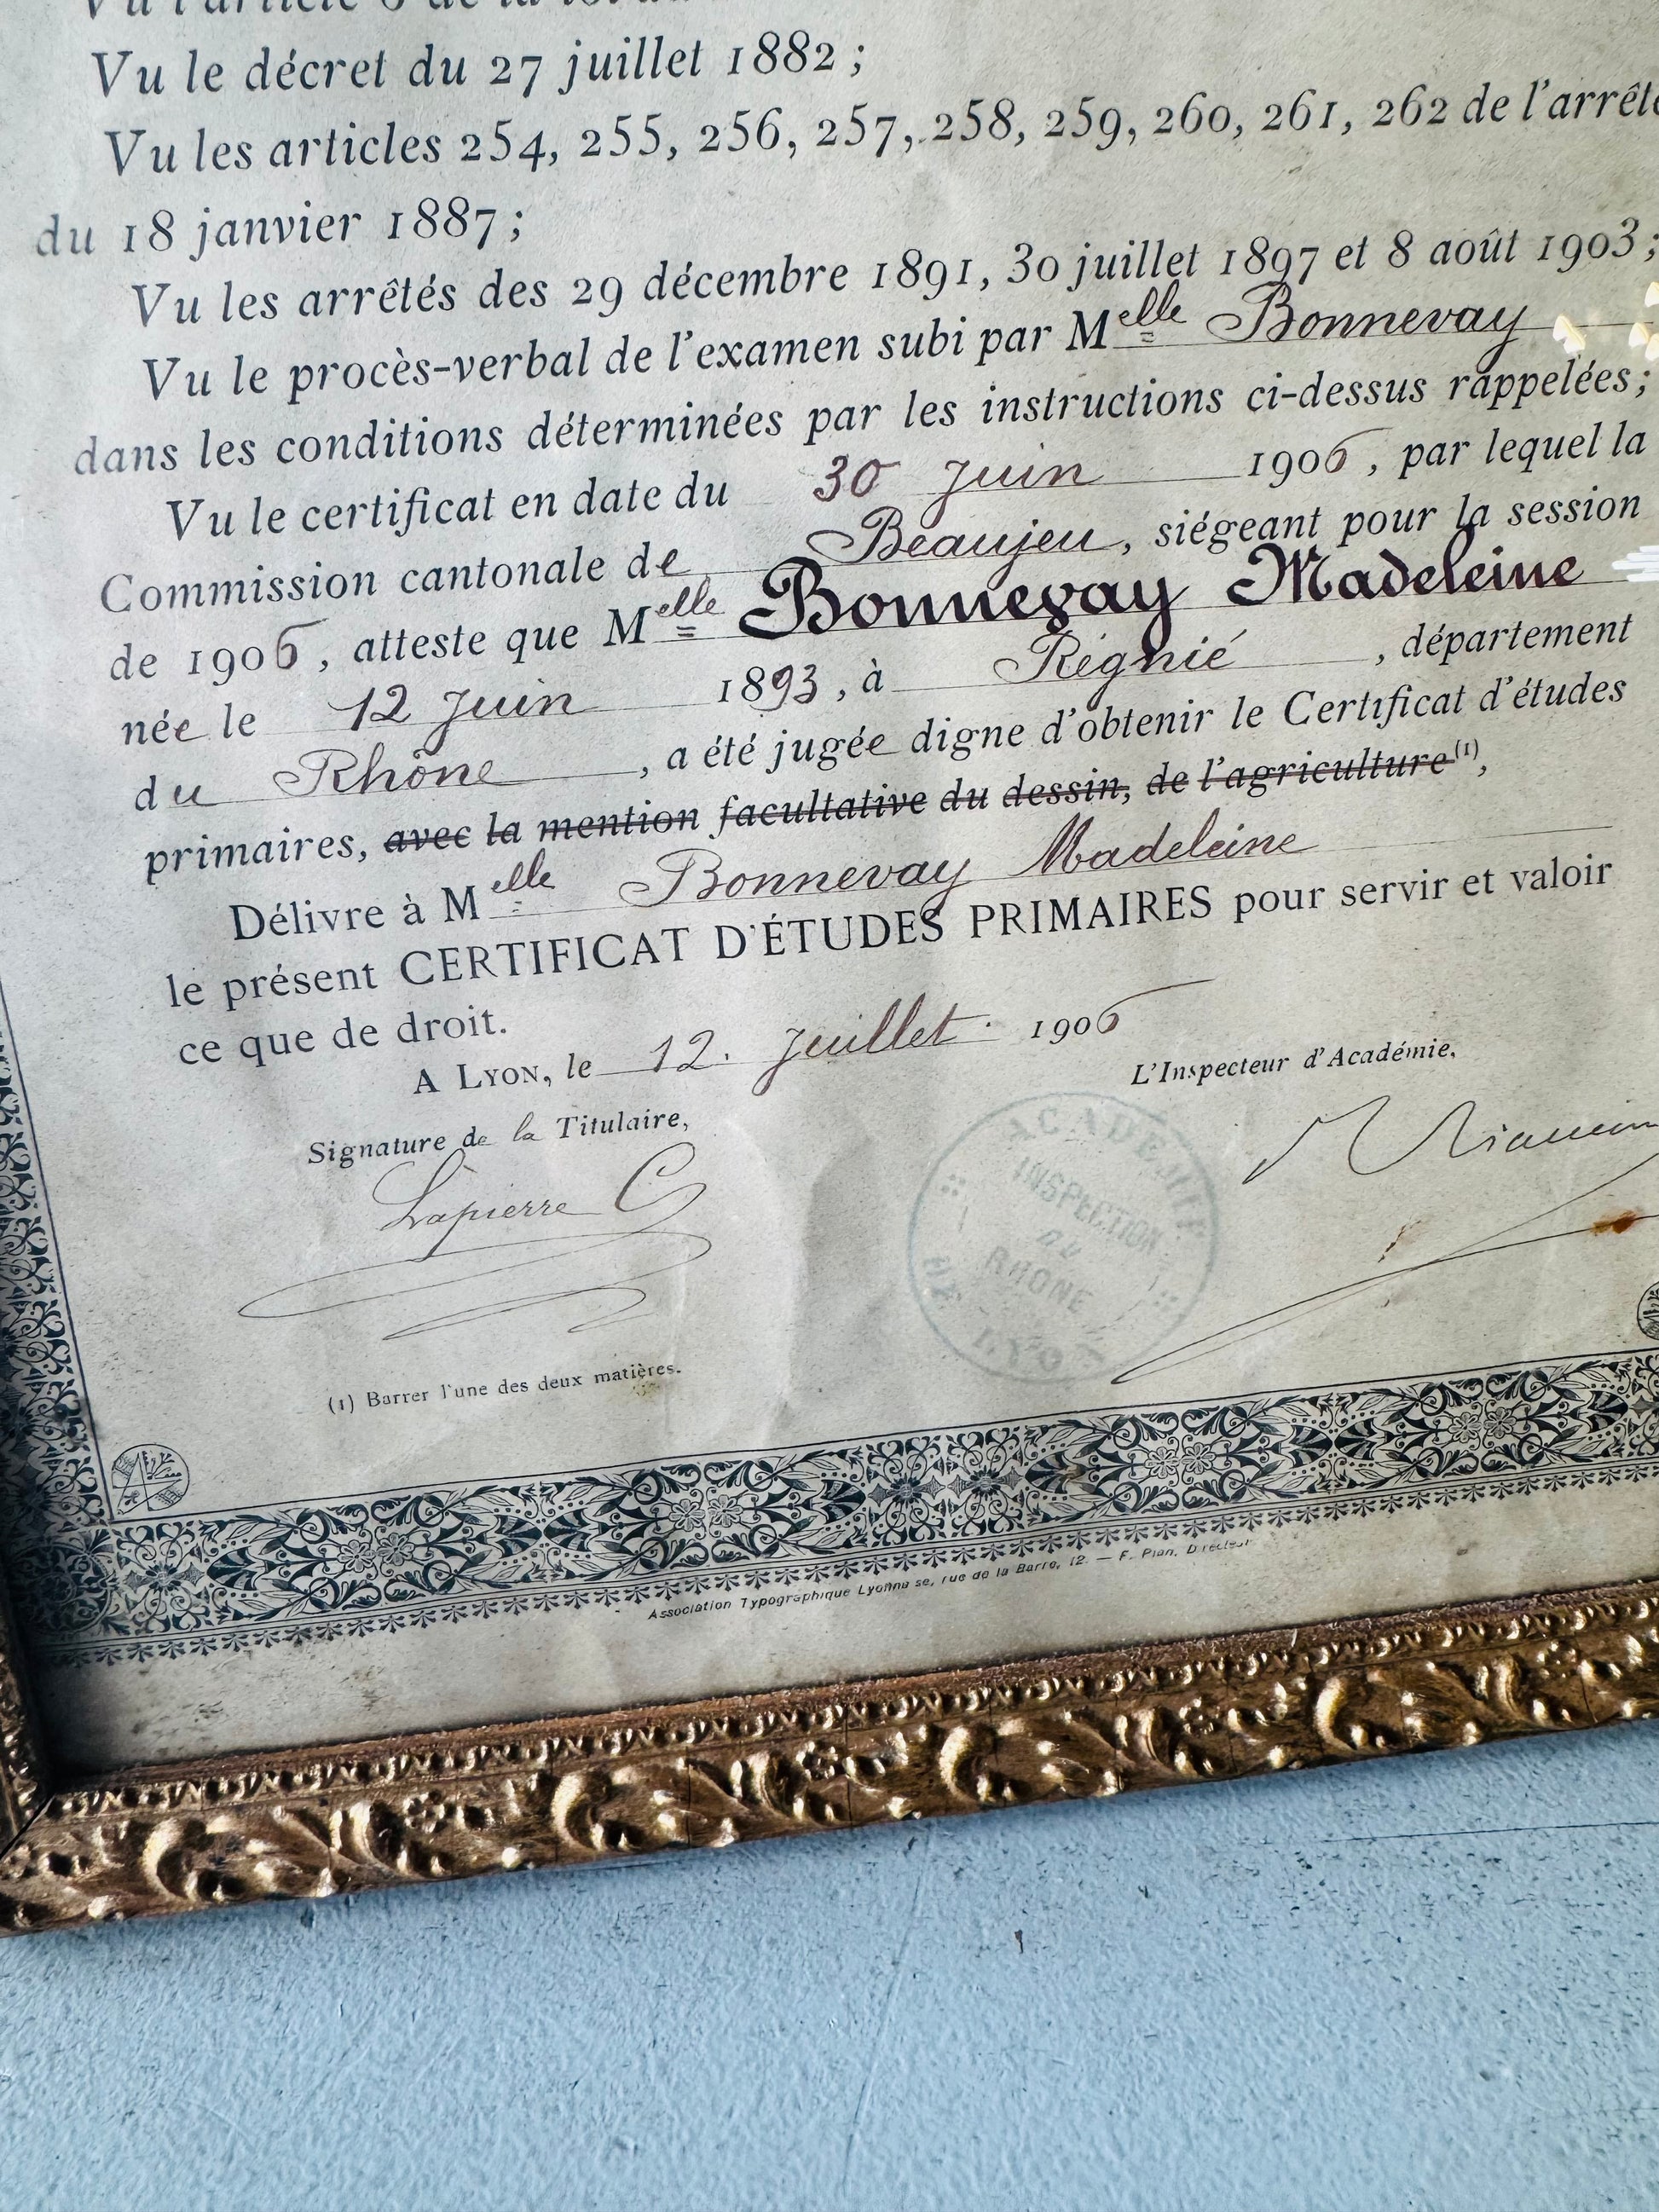 Vu l'article 6 de la loi du
Vu le décret du 27 juillet 1882 ;
Vu les articles 254, 255, 256, 257, 258, 259, 260, 261, 262 de l'arrêté
du 18 janvier 1887 ;
Vu les arrêtés des 29 décembre 1891, 30 juillet 1897 et 8 août 1903 ;
Vu le procès-verbal de l'examen subi par Melle Bonnevay
dans les conditions déterminées par les instructions ci-dessus rappelées ;
Vu le certificat en date du 30 Juin 1906, par lequel la
Commission cantonale de Beaujeu, siégeant pour la session
de 1906, atteste que Melle Bonnevay Madeleine
née le 12 Juin 1893, à Régnié, département
du Rhône, a été jugée digne d'obtenir le Certificat d'études
primaires, avec la mention facultative du dessin, de l'agriculture (1),
Délivre à Melle Bonnevay Madeleine
le présent CERTIFICAT D'ÉTUDES PRIMAIRES pour servir et valoir
ce que de droit.
A LYON, le 12. Juillet. 1906
L'Inspecteur d'Académie,
Signature de la Titulaire,
Lapierre C
ACADEMIE
INSPECTION
DU
RHONE
DE LYON
(1) Barrer l'une des deux matières.
Association Typographique Lyonnaise, rue de la Barre, 12. — F. Plan, Directeur